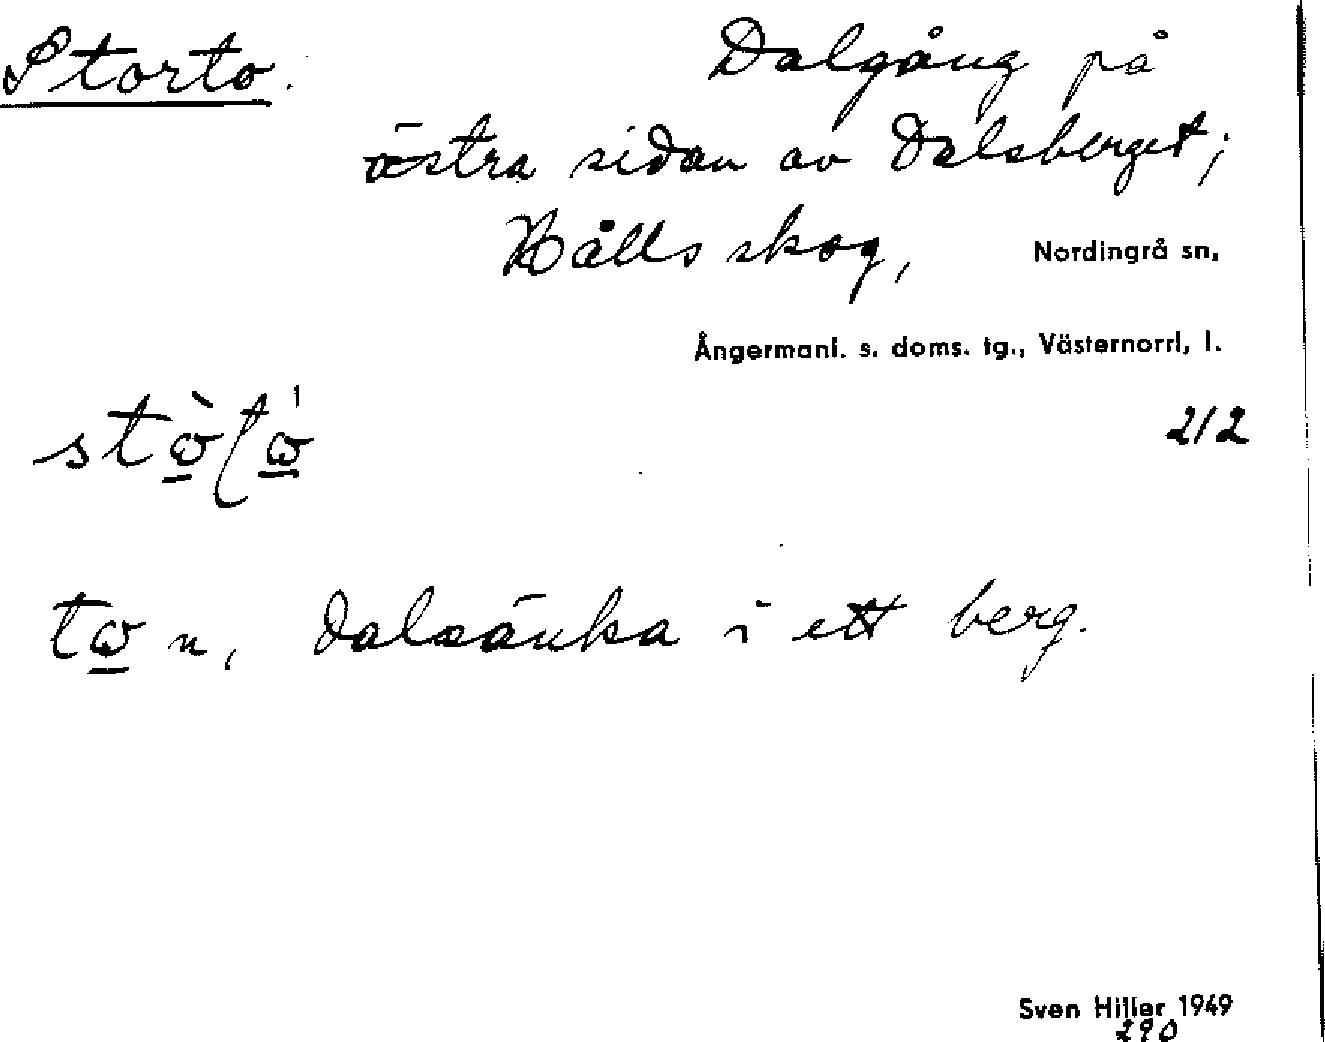 Storto. Dalgång på
östra sidan av Dalsberget;
Hålls skog, Nordingrå sn,
Ångermanl. s. doms. tg., Västernorrl, l.
212
n, dalsänka i ett berg.
Sven Hiller 1949
290